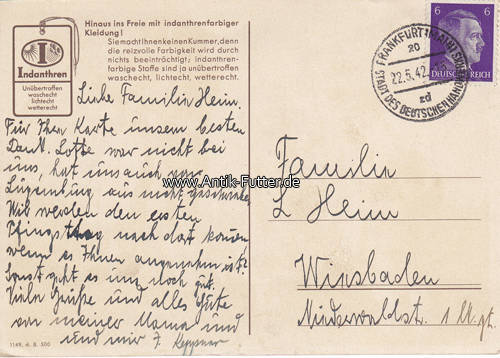 Hinaus ins Freie mit indanthrenfarbiger
Kleidung!
Sie macht Ihnen keinen Kummer, denn
die reizvolle Farbigkeit wird durch
nichts beeinträchtigt; indanthren-
farbige Stoffe sind ja unübertroffen
waschecht, lichtecht, wetterecht.
I
Indanthren
Unübertroffen
waschecht
lichtecht
wetterecht
Liebe Familie Heim.
Für Ihre Karte unsern besten
Dank. Lotte war nicht bei
uns, hat uns auch von
Luxemburg aus nicht geschrieben
Wir werden den ersten
Pfingsttag nach dort kommen
wenn es Ihnen angenehm ist.
Sonst geht es uns noch gut.
Viele Grüße und alles Gute
von meiner Mama und
und mir
1149. d. 8. 500
FRANKFURT (MAIN)
20
22.5.42
zd
STADT DES DEUTSCHEN HANDWERKS
6 6
DEUTSCHES REICH
www.Antik-Futter.de
Familie
L Heim
Wiesbaden
Niederwaldstr. 1